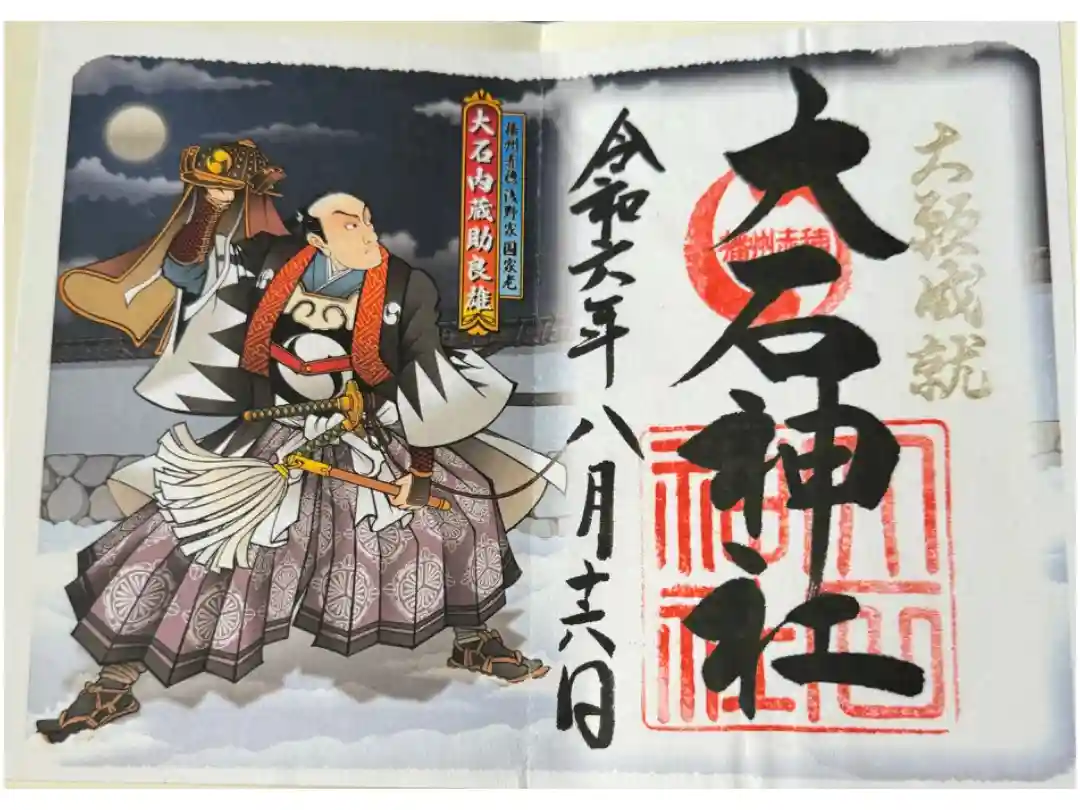 大願成就
大石神社
播州赤穂
大石
神社
令和六年八月十六日
播州赤穂 浅野家 国家老
大石内蔵助良雄